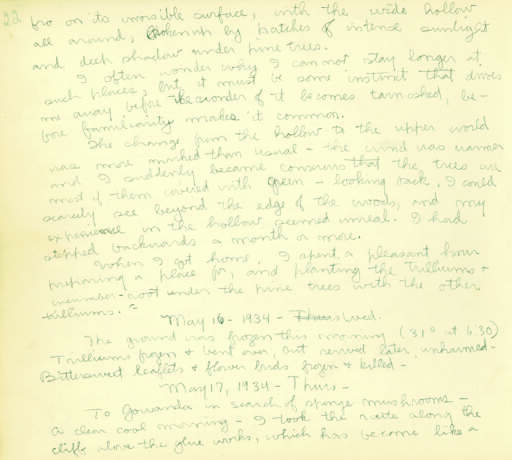 22 fro on its invisible surface, with the wide hollow
all around, broken up by patches of intense sunlight
and deep shadow under pine trees.
I often wonder why I can not stay longer at
such places; but it must be some instinct that drives
me away before the wonder of it becomes tarnished, be-
fore familiarity makes it common.
The change from the hollow to the upper world
was more marked than usual - the wind was warmer
and I suddenly became conscious that the trees were
most of them covered with green - looking back, I could
scarcely see beyond the edge of the woods, and my
experience in the hollow seemed unreal. I had
stepped backwards a month or more.
When I got home, I spent a pleasant hour
preparing a place for, and planting the Trilliums +
cucumber-root under the pine trees with the other
trilliums.
May 16 - 1934 - Thurs Wed.
The ground was frozen this morning (31° at 6:30)
Trilliums frozen & bent over, but revived later, unharmed -
Bittersweet leaflets & flower buds frozen & killed -
May 17, 1934 - Thurs -
To Gowanda in search of sponge mushrooms -
A clear cool morning - I took the route along the
cliffs above the glue works, which has become like a